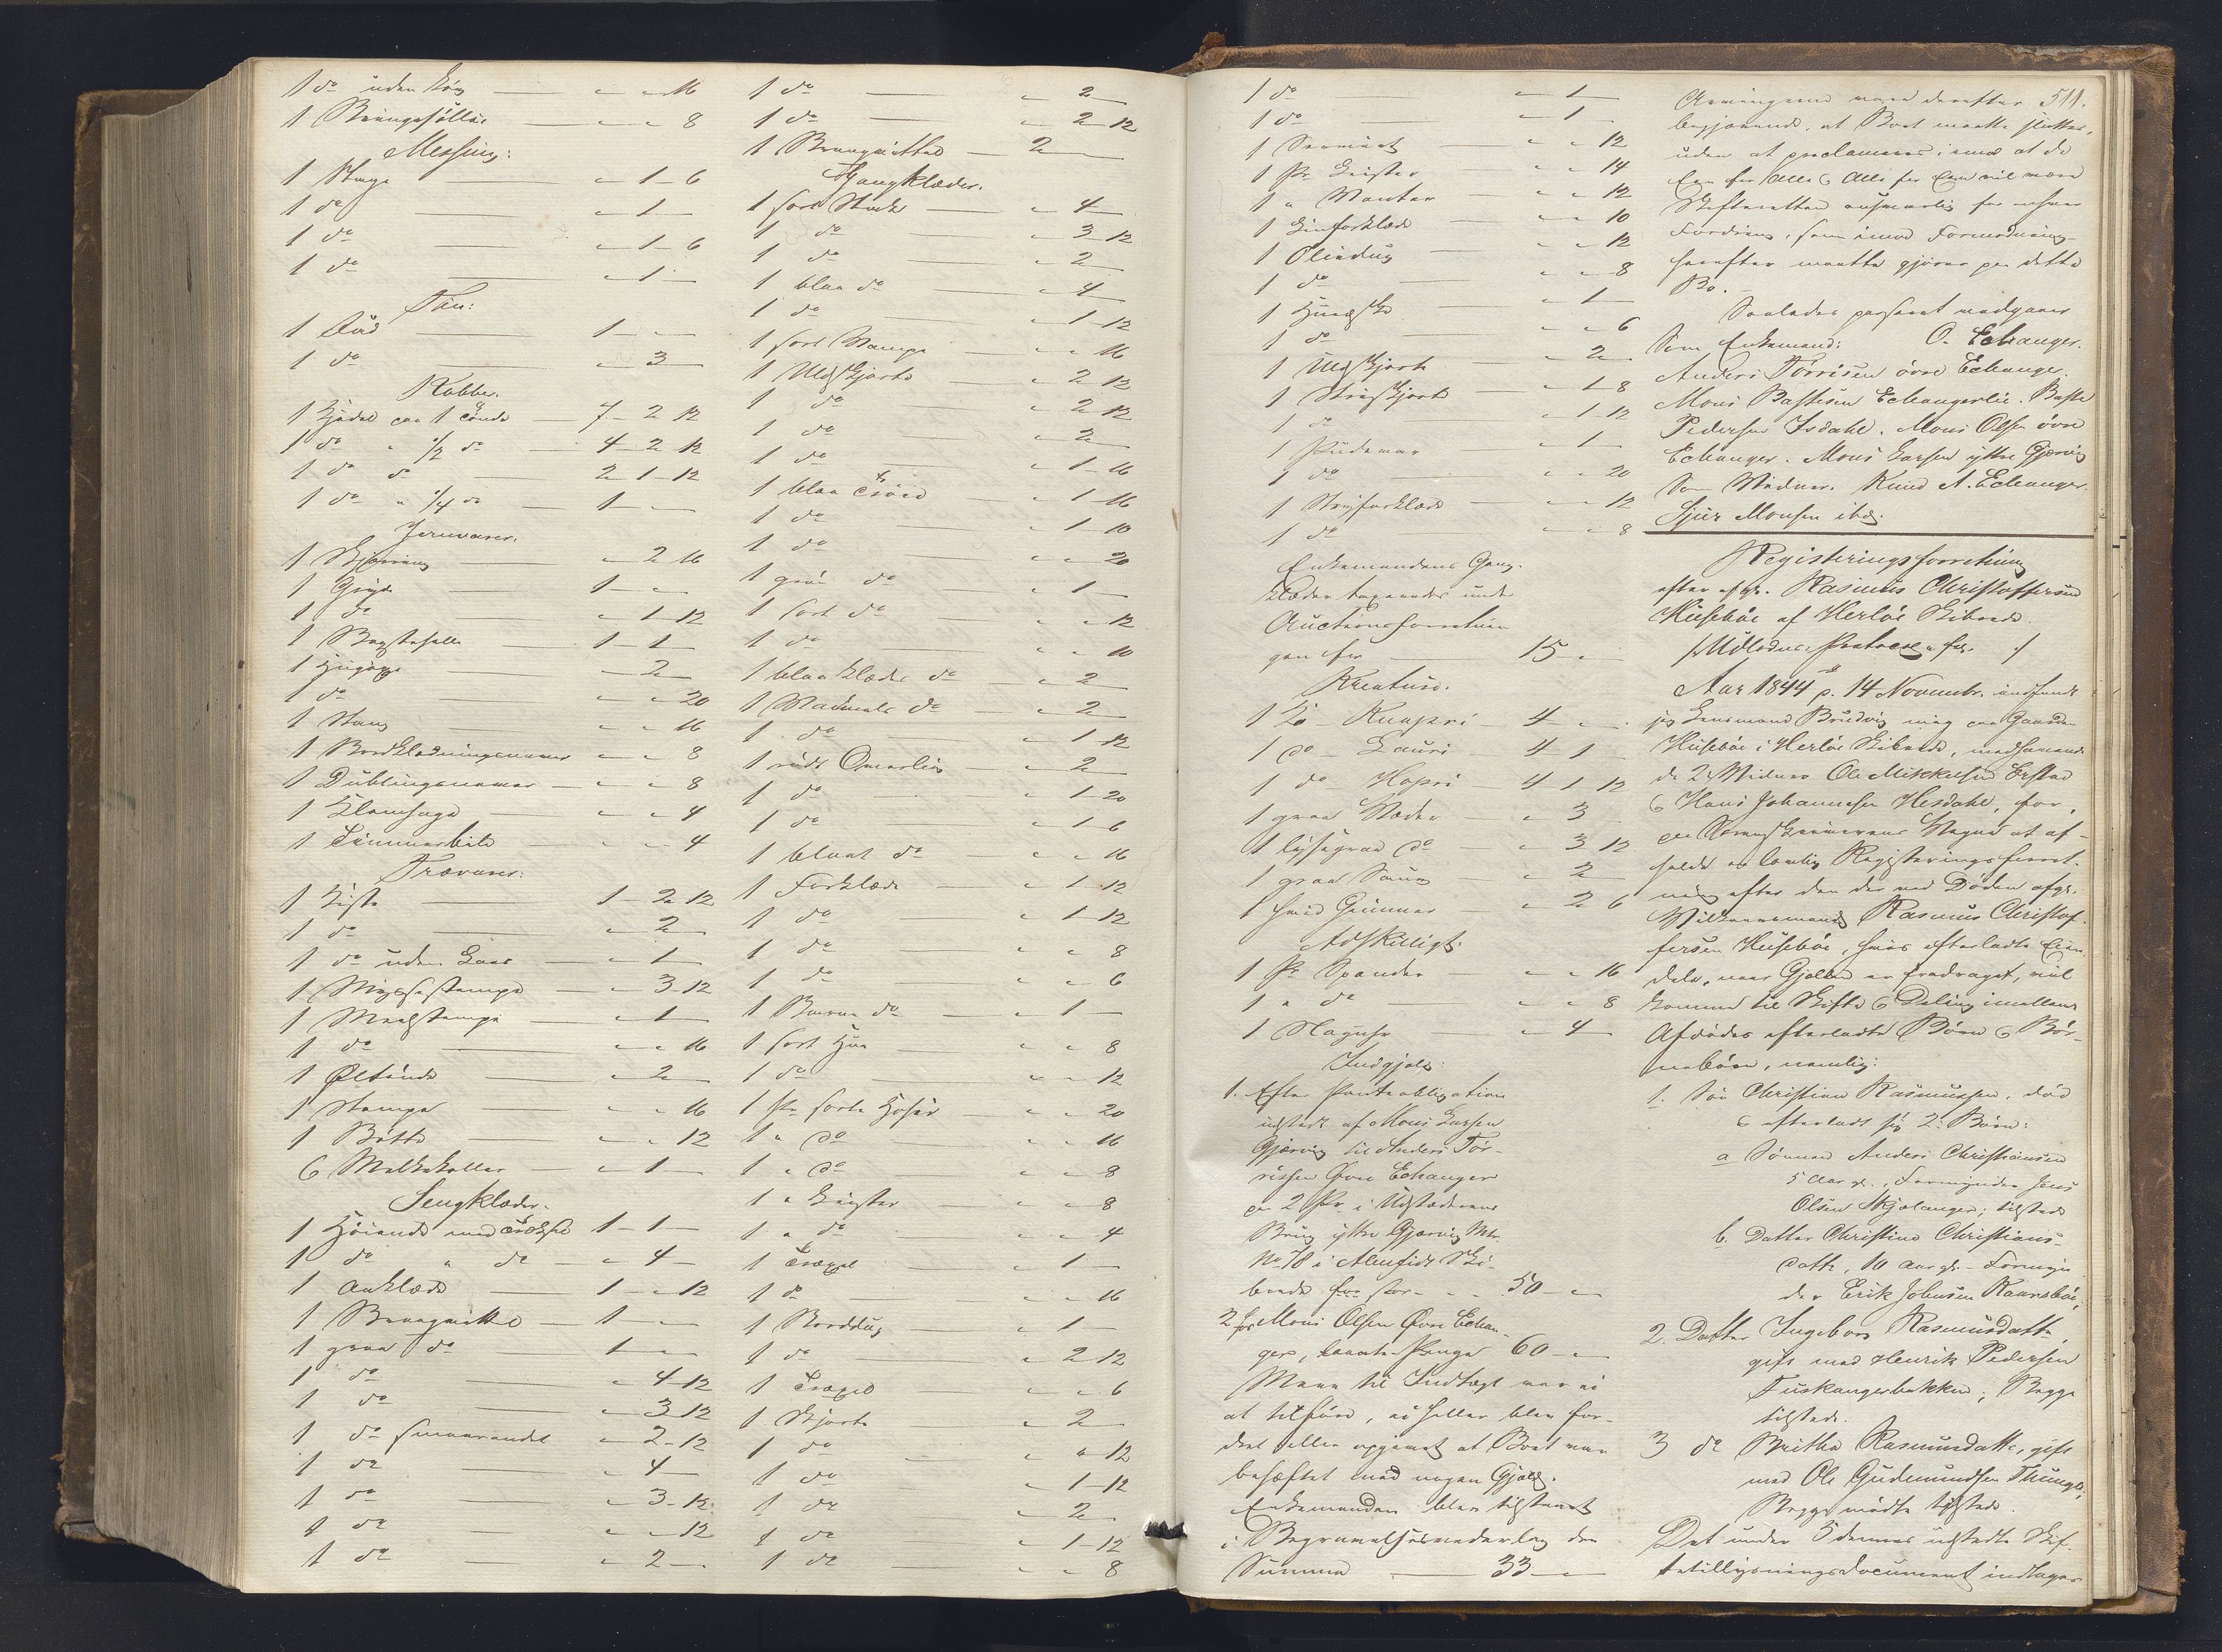 1 do uden
1 8
Messing:
1 Stage " 1 - 6
1 do " 1 -
1 do " 1 - 6
1 do " 1 -
Tin:
1 Fad 1 - "
1 do " 3 -
Kobber.
1 Kjedel paa 1 Tönde 7 - 2 12
1 do " 1/2 do 4 - 2 12
1 do do 2 1 - 12
1 do " 1/4 do 1 - "
Jernvarer.
1 " 2 16
1 Gryde 1 - "
1 do " 1 - 12
1 Bagstehelle 1 - 1
1 Hugöxe " 2 -
1 do " " 20
1 Stang " " 16
1 Bordklædningsnaver " " 8
1 Dublingsnaver " " 8
1 Klovsage " " 4
1 Tömmerbile " " 4
Trævarer:
1 Kiste 1 - 2 12
1 do " 2 -
1 do uden Laas " 1 -
1 " 3 - 12
1 " 1 -
1 do " " 16
1 Öltönde " 2 -
1 Stampe " " 16
1 Bötte " " 12
6 Melkekoller " 1 -
Sengklæder.
1 Höiende med 1 - 1 -
1 do " do " 4 -
1 Aaklæde 1 - " 12
1 1 - "
1 graa do 1 - "
1 do " 4 - 12
1 do " 3 12
1 do " 2 - 12
1 do " 4 -
1 do " 3 - 12
1 do " " 12
1 do " 2 -
1 do " 2 -
1 do " 2 - 12
1 2 -
Gangklæder.
1 sort Stak " 4 -
1 do " 3 - 12
1 do " 2 -
1 blaa do " 4 -
1 do " 1 - 12
1 sort " " 16
1 Uldskjorte " 2 12
1 do " 2 12
1 do " 2 -
1 do " 1 - 16
1 blaa Tröie " 1 - 16
1 do " 1 - 10
1 do " " 20
1 grön do " 1 -
1 sort do " " 12
1 do " " 10
1 blaa Klædes do " 2 -
1 Vadmels do " 2 -
1 do " 1 - 12
1 rödt " 2 -
1 do " 1 - 20
1 do " 1 - 6
1 blaat do " " 16
1 Forklæde " 1 - 12
1 do " 1 - 12
1 do " " 8
1 do " " 6
1 do " 1 -
1 sort Hue " " 8
1 do " " 12
1 Pr sorte Hoser " " 20
1 " do " " 16
1 " do " " 8
1 " Leister " " 8
1 " do " " 4
1 " 1 -
1 do " " 16
1 Borddug " 1 -
1 do " 2 12
1 " " 6
1 Skjorte " 2 -
1 do " " 12
1 do " 1 - 12
1 do " 2 -
1 do " 1 - 12
1 do " " 8
1 do " 1 -
1 do " 1 -
1 " " 12
1 Pr Leister " " 14
1 " Vanter " " 12
1 Linforklæde " " 10
1 " " 12
1 do " " 8
1 " 1 -
1 do " " 6
1 Uldskjorte " 2 -
1 Strieskjorte " 1 - 8
1 do " 1 - 12
1 Pudevar " 1 -
1 do " " 20
1 Strieforklæde " " 12
1 do " " 8
Enkemandens Gang-
klæder beregnedes under
Auctionsforretnin-
gen for 15 "
Kreature.
1 Ko Knapri 4 - "
1 do Lauri 4 1
1 do Hopri 4 1 12
1 graa Væder " 3
1 lysegraa do " 3 12
1 graa Saug " 2
1 hvid Gimmer " 2 6
Adskilligt.
1 Pr Spander " " 16
1 " do " " 8
1 Slaguhr " 4 -
Indgjæld:
1. Efter Panteobligation
udstedt af Mons Larsen
Gjervig til Anders Tör-
risen Övre Echanger
paa 2 Pr. i Udstederens
Brug yttre Gjervig Mtr.
No 78 i Alenfidt Ski-
brede for stor 50 - "
2 hos Mons Olsen Övre Echan-
ger, laante Penge 60 - "
Mere til Indtægt var ei
at tilföre, ei heller blev for-
dret eller opgivet at Boet var
behæftet med nogen Gjæld.
Enkemanden blev tilstaaet
i Begravelsesvederlag den
Summa 33 "
511.
Arvingerne vare derefter
begjærende, at Boet maatte sluttes,
uden at proclameres, imod at de
Een for Alle & Alle for Een vil være
Skifteretten ansvarlig for enhver
Fordring, som imod Formodning
herefter maatte gjöres paa dette
Bo. -
Saaledes passeret medgives
Som Enkemand: O. Echanger.
Anders Törrisen övre Echanger.
Mons Bastesen Echangerlie. Baste
Pedersen Isdahl. Mons Olsen övre
Echanger. Mons Larsen yttre Gjervig
Som Vidner. Knud A. Echanger.
Sjur Monsen ibid.
Registeringsforretning
efter afg. Rasmus Christoffersen
Husebøe af Herlöe Skibrede.
/: Udlodns. Protocol " fol. :/
Aar 1844 d. 14 Novembr. indfandt
jeg Lensmand Brudvig mig paa Gaarden
Husebøe i Herlöe Skibrede, medhavende
de 2de Vidner Ole Mikkelsen Erstad
& Hans Johannesen Hesdahl, for,
paa Sorenskriverens Vegne at af-
holde en lovlig Registeringsforret-
ning efter den der ved Döden afg.
Vilkaarsmand Rasmus Christof-
fersen Husebøe, hvis efterladte Eien-
dele, naar Gjælden er fradraget, vil
komme til Skifte & Deling imellem
Afdödes efterladte Börn & Bör-
nebörn, nemlig:
1. Sön Christian Rasmussen, död
& efterladt sig 2 Börn:
a Sönnen Anders Christiansen
5 Aar gl., Formynder Jens
Olsen Skjelanger; tilstede
b. Datter Christine Christians-
datter, 10 Aar gl. - Formyn-
der Erik Johnsen Ravnebøe,
2. Datter Ingebor Rasmusdatter,
gift med Henrik Pedersen
Tuskangerbakken; Begge
tilstede.
3 do Britha Rasmusdatter, gift
med Ole Gudmundsen
Begge mödte tilstede.
Det under 5 dennes udstedte Skif-
tetillysningsdocument indtages